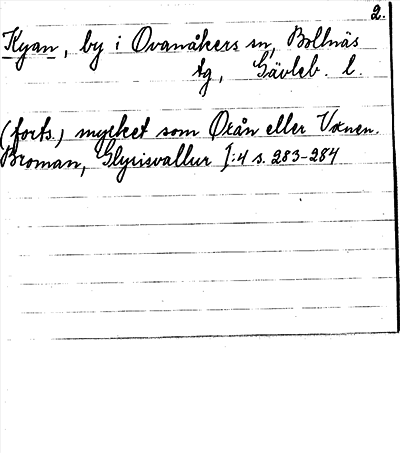 2.
Kyan, by i Ovanåkers sn, Bollnäs
tg, Gävleb. l.
(forts.) mycket som Oxån eller Voxnen.
Broman, Glysisvallur I:4 s. 283-284